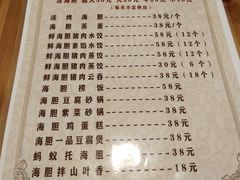 (每天不定价目)
活烤海胆——38元/个
海胆蒸蛋——38元/个
鲜海胆猪肉水饺——58元(12个)
鲜海胆素馅水饺——58元(12个)
鲜海胆猪肉蒸饺——58元(12个)
鲜海胆猪肉蒸饺——30元(6个)
鲜海胆猪肉云吞——38元(18个)
海胆捞饭——58元
海胆豆腐砂锅——38元
海胆紫菜砂锅——38元
海胆鸡蛋糕——38元
海胆一品豆腐煲——38元
蚂蚁托海胆——38元
海胆拌山叶香——18元